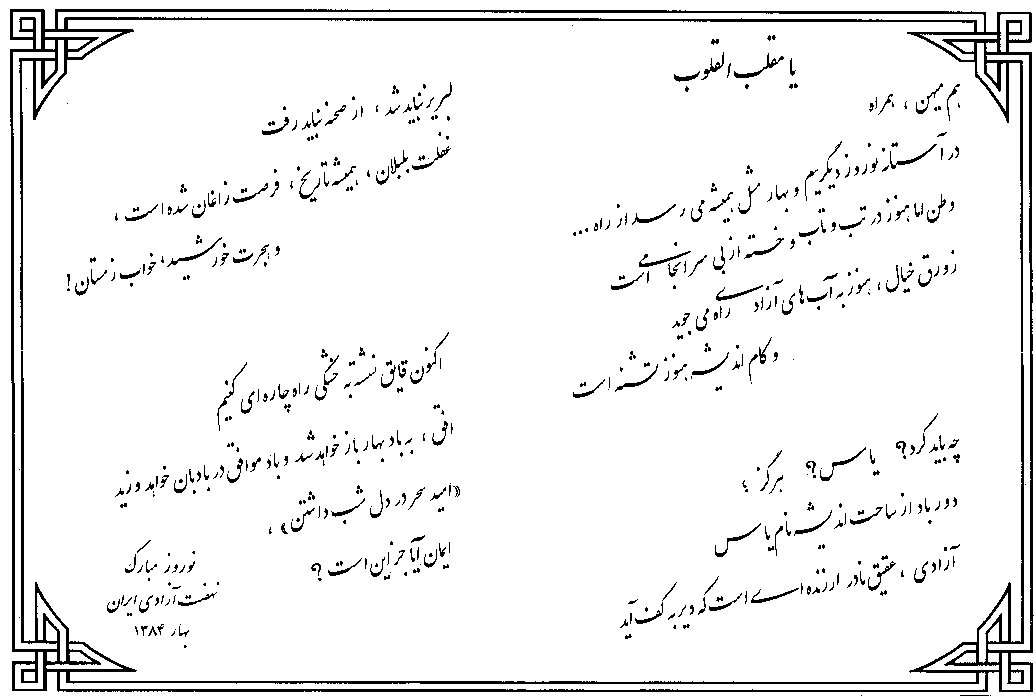 یا مقلب القلوب
هم میهن ، همراه
در آستانه نوروز دیگریم و بهار مثل همیشه می رسد از راه ...
وطن اما هنوز در تب و تاب و خسته از بی سرانجامی است
زورق خیال ، هنوز به آب های آزادی راه می جوید
و کام اندیشه هنوز تشنه است
چه باید کرد؟ یاس؟ هرگز ؛
دور باد از ساحت اندیشه نام یاس
آزادی ، عقیق نادر ارزنده ای است که دیر به کف آید
لبریز نباید شد ، از صحنه نباید رفت
غفلت بلبلان ، همیشه تاریخ ، فرصت زاغان شده است ،
و هجرت خورشید ، خواب زمستان !
اکنون قایق نشسته به خشکی راه چاره ای کنیم
افق ، به باد بهار باز خواهد شد و باد موافق در بادبان خواهد وزید
«امید سحر در دل شب داشتن» ،
ایمان آیا جز این است ؟
نوروز مبارک
نهضت آزادی ایران
بهار ۱۳۸۴